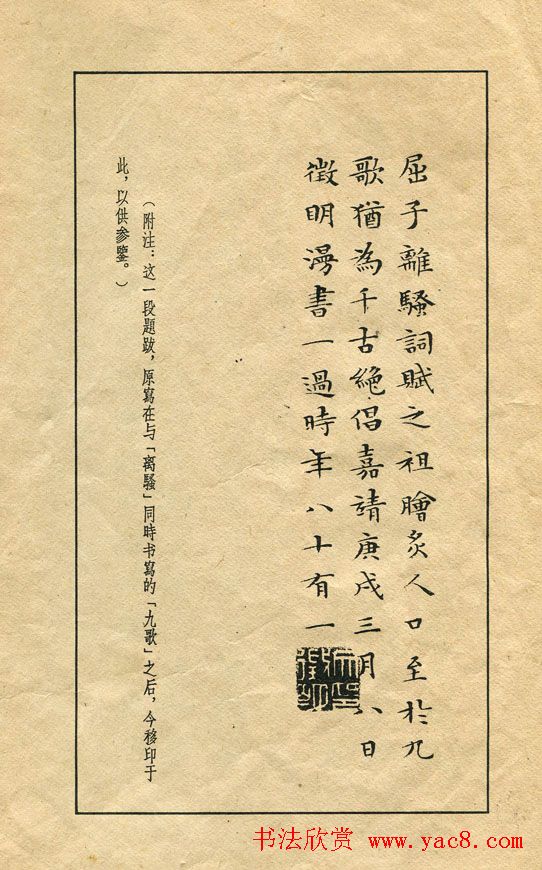 屈子離騷詞賦之祖膾炙人口至於九
歌猶為千古絶倡嘉靖庚戌三月八日
徵明漫書一過時年八十有一
（附注：这一段題跋，原寫在与「离騷」同時书寫的「九歌」之后，今移印于
此，以供参鑒。）
书法欣赏 www.yac8.com